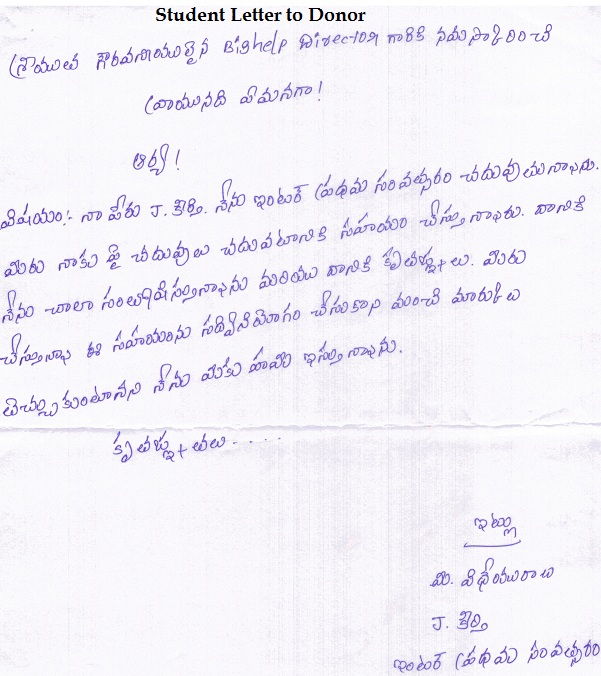 Student Letter to Donor
శ్రీయుత గౌరవనీయులైన Bighelp Director గారికి నమస్కరించి
వ్రాయునది ఏమనగా!
ఆర్య!
విషయం:- నా పేరు J. కీర్తి. నేను ఇంటర్ ప్రథమ సంవత్సరం చదువుచున్నాను.
మీరు నాకు పై చదువులు చదువటానికి సహయం చేస్తున్నారు. దానికి
నేను చాలా సంతోషిస్తున్నాను మరియు దానికి కృతజ్ఞతలు. మీరు
చేస్తున్న ఈ సహయంను సద్వినియోగం చేసుకొని మంచి మార్కులు
తెచ్చుకుంటానని నేను మీకు హామి ఇస్తున్నాను.
కృతజ్ఞతలు . . . . .
ఇట్లు
మీ. విధేయురాలు
J. కీర్తి
ఇంటర్ ప్రథమ సంవత్సరం